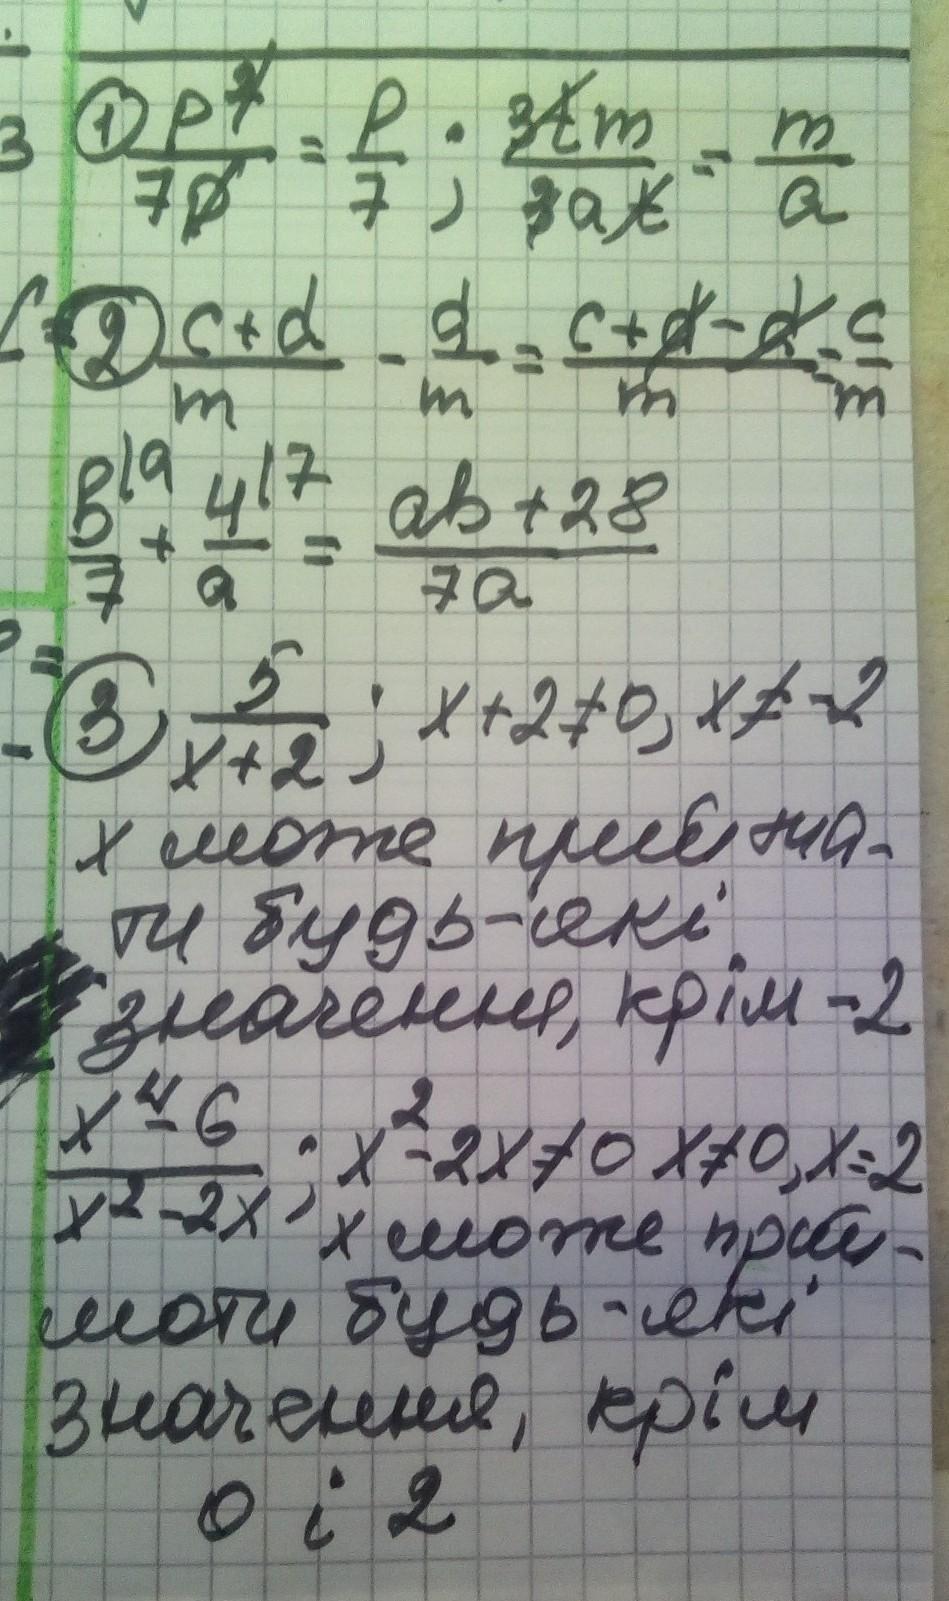 ① p²/7p = p/7 ; 3tm/3at = m/a
② (c+d)/m - d/m = (c+d-d)/m = c/m
b/7 |a + 4/a |7 = (ab+28)/7a
③ 5/(x+2) ; x+2≠0, x≠-2
x може прийма-
ти будь-які
значення, крім -2
(x⁴-6)/(x²-2x) ; x²-2x≠0 x≠0, x=2
x може прий-
мати будь-які
значення, крім
0 і 2